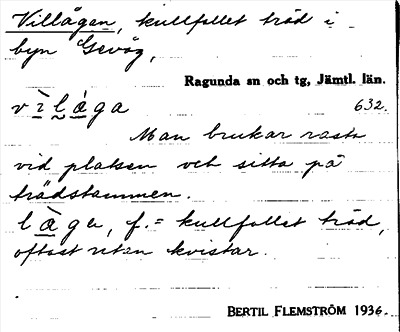 Villågan, kullfallet träd i
byn Gevåg,
Ragunda sn och tg, Jämtl. län.
vìlåga 632.
Man brukar rasta
vid platsen och sitta på
trädstammen.
låga, f. = kullfallet träd,
oftast utan kvistar.
BERTIL FLEMSTRÖM 1936.